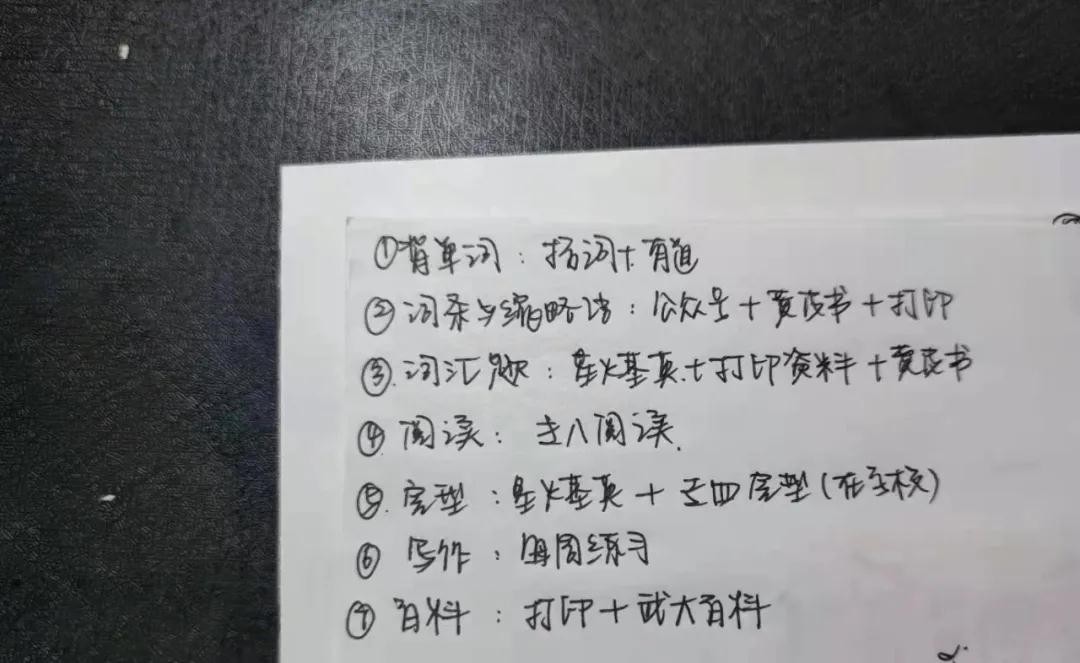 ①背单词：拓词+有道
②词条与缩略语：公众号+黄皮书+打印
③.词汇题：星火基英+打印资料+黄皮书
④阅读：专八阅读.
⑤.完型：星火基英+专四完型(在学校)
⑥写作：每周练习
⑦百科：打印+武大百科